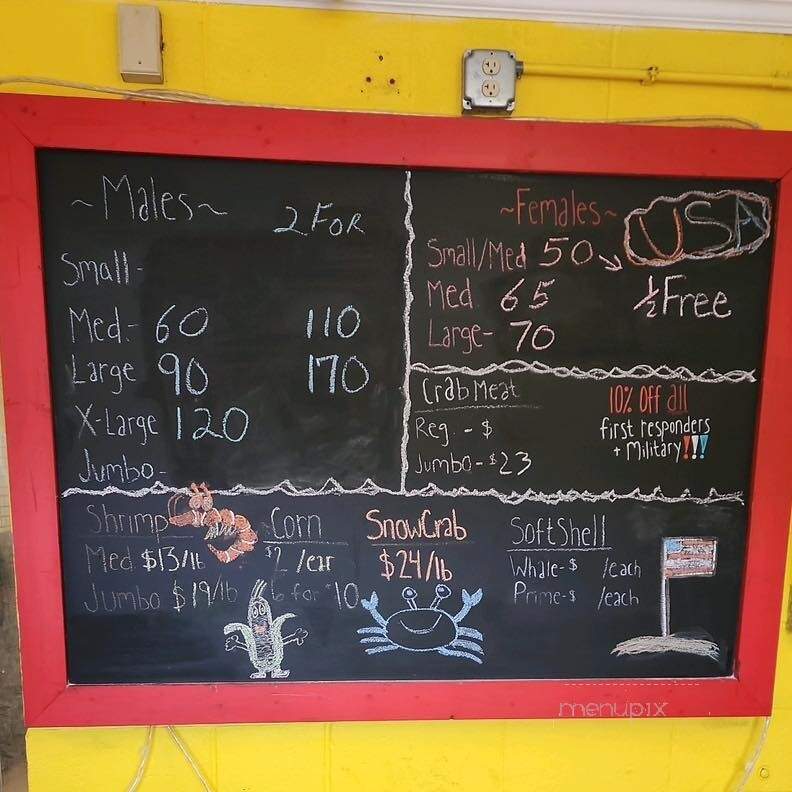 ~Males~
2 FOR
Small-
Med.- 60 110
Large 90 170
X-Large 120
Jumbo-
~Females~
USA
Small/Med 50
Med. 65
1/2 Free
Large- 70
Crab Meat
Reg. - $
Jumbo-$23
10% Off all
first responders
+ Military!!!
Shrimp
Med $13/lb
Jumbo $19/lb
Corn
$2 /ear
6 for $10
SnowCrab
$24/lb
SoftShell
Whale-$ /each
Prime-$ /each
menupix